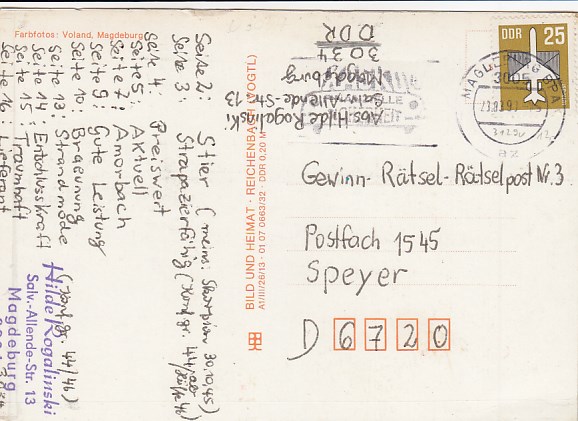 Farbfotos: Voland, Magdeburg
Seite 2: Stier (meins: Skorpion 30.10.45)
Seite 3: Strapazierfähig (Konf.gr. 44/
Seite 4: Preiswert
Seite 5: Aktuell
Seite 7: Amorbach
Seite 9: Gute Leistung
Seite 10: Braeunung
Seite 13: Strandmode (Konf.gr. 44/46)
Seite 14: Entschlusskraft
Seite 15: Traumhaft
Seite 16: Lieferant
Hilde Rogalinski
Salv.-Allende-Str. 13
Magdeburg
BILD UND HEIMAT · REICHENBACH (VOGTL)
A1/III/26/13 · 01 07 0663/32 · DDR 0,20 M
Abs: Hilde Rogalinski
Salv.-Allende-Str. 13
Magdeburg
3034
DDR
DDR 25
MAGDEBURG BPA
3005
az
Gewinn-Rätsel-Rätselpost Nr. 3
Postfach 1545
Speyer
D 6720